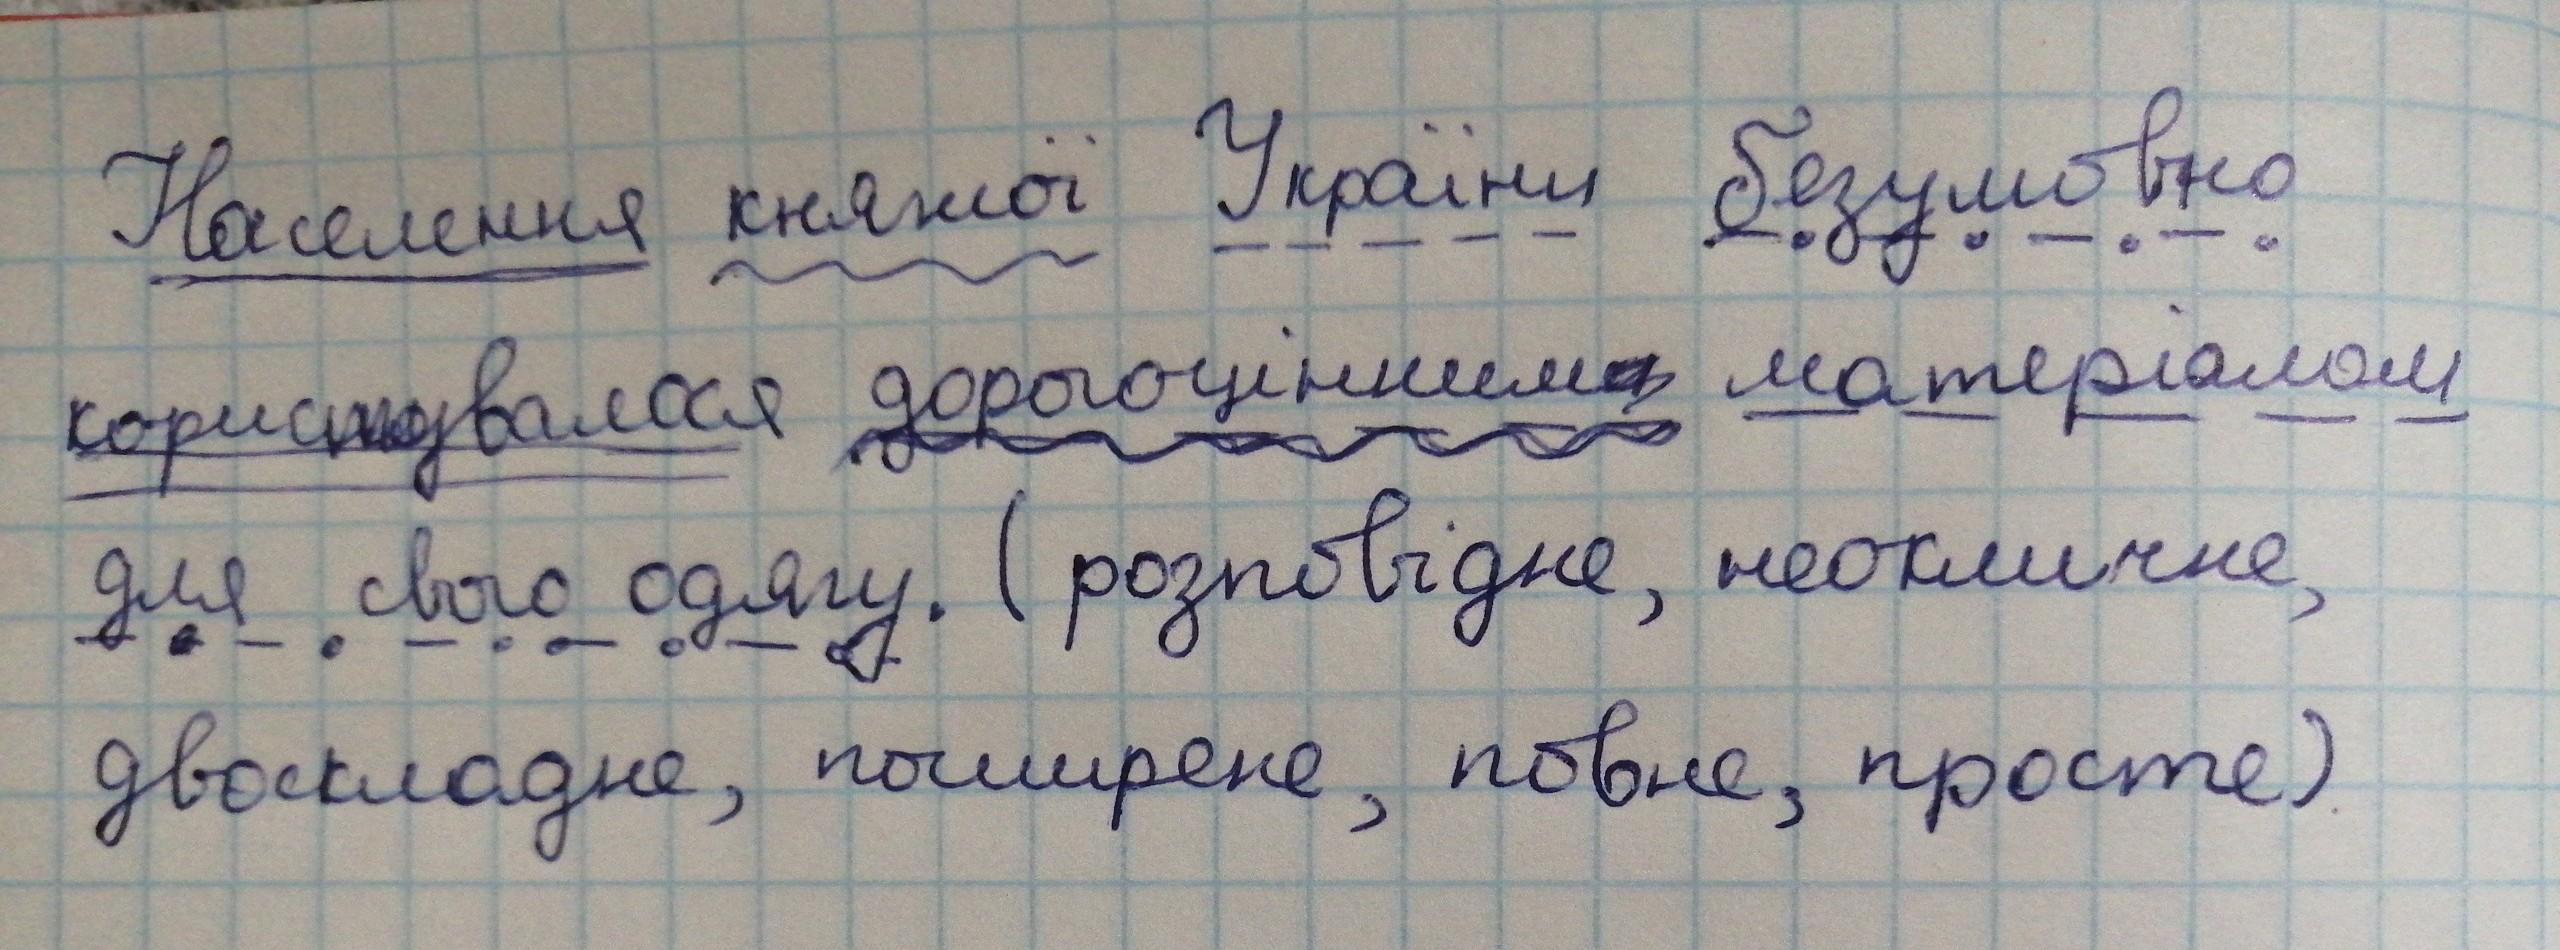 Населення княжої України безумовно
користувалося дорогоцінним матеріалом
для свого одягу. (розповідне, неокличне,
двоскладне, поширене, повне, просте)